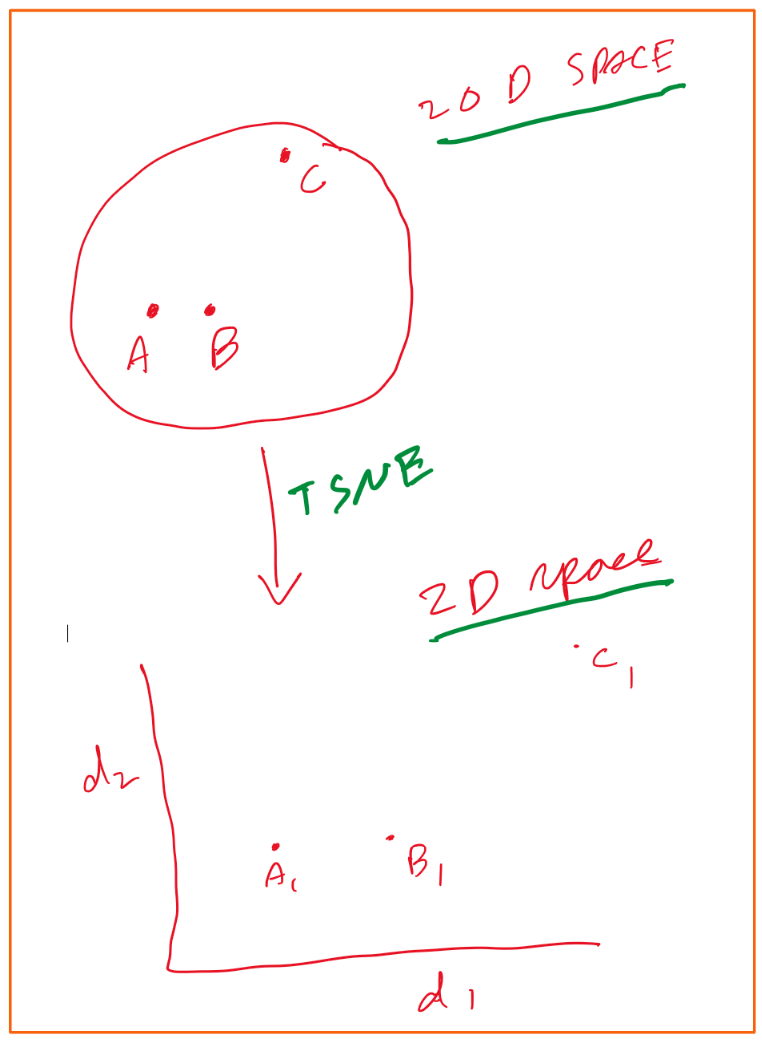 20 D SPACE
C
A B
TSNE
2D space
C1
d2
A1 B1
d1